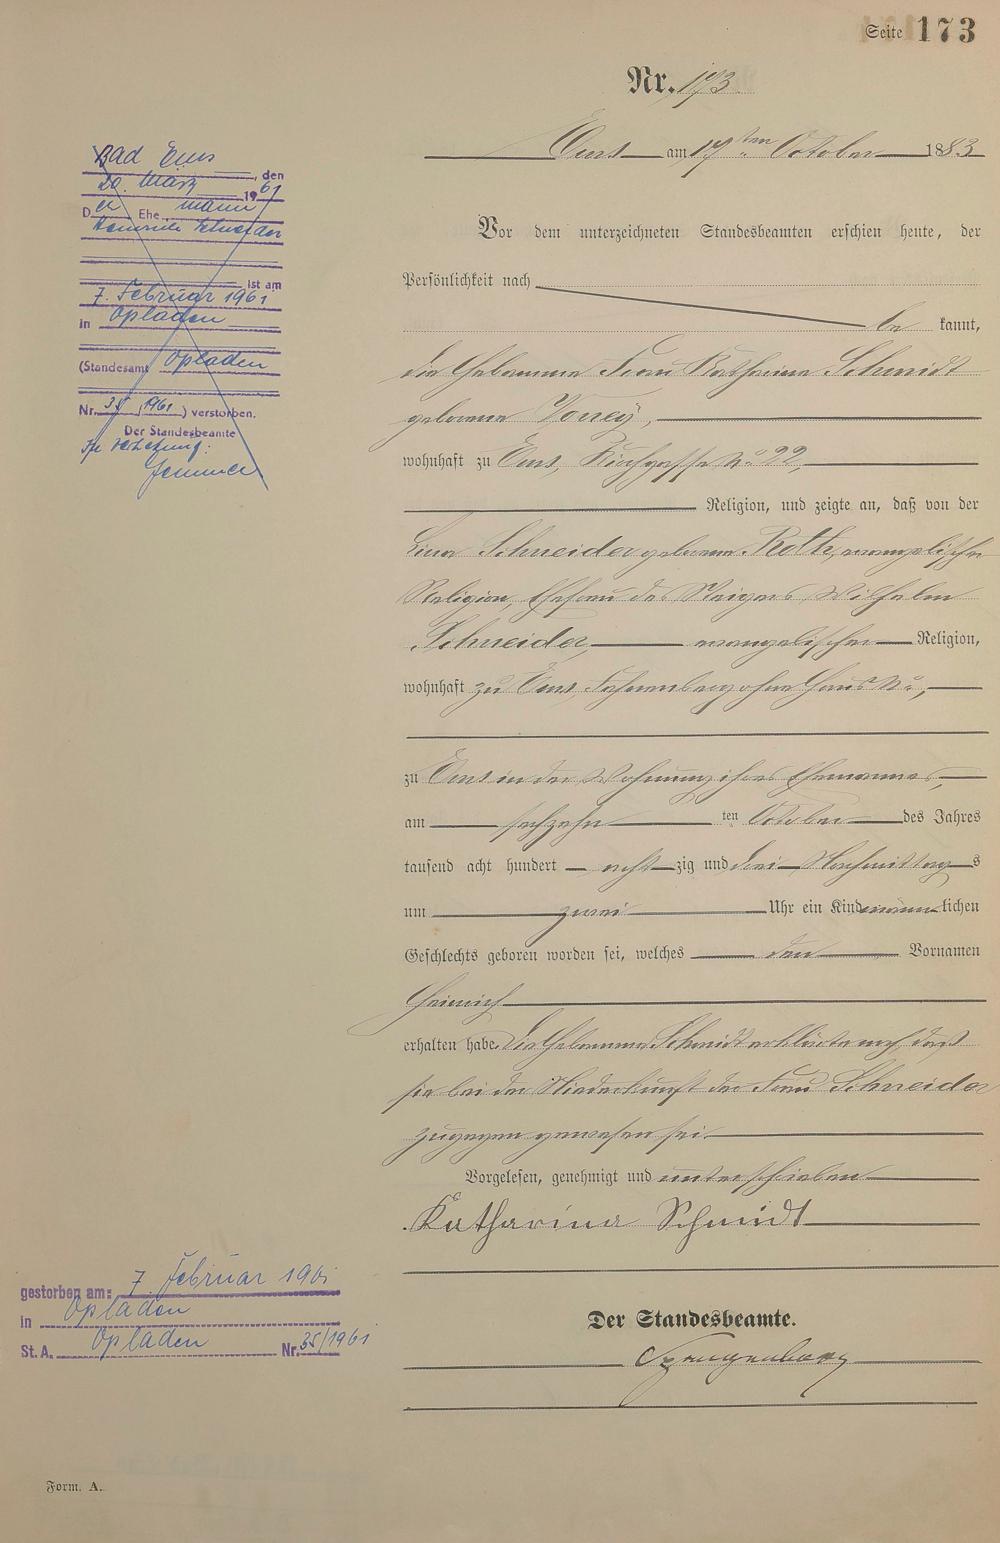 Seite 173
Nr. 173.
Ems am 17ten October 1883
Vor dem unterzeichneten Standesbeamten erschien heute, der
Persönlichkeit nach
be kannt,
die Hebamme Frau Katharina Schmidt
geborene
wohnhaft zu Ems, Kirchgasse No 22,
Religion, und zeigte an, daß von der
Lina Schneider geborene Roth, evangelischer
Religion, Ehefrau des Steigers Wilhelm
Schneider, evangelischer Religion,
wohnhaft zu Ems, ohne Haus No,
zu Ems in der Wohnung ihres Ehemannes,
am sechzehn ten October des Jahres
tausend acht hundert acht zig und drei Nachmittag s
um zwei Uhr ein Kind männ lichen
Geschlechts geboren worden sei, welches den Vornamen
Heinrich
erhalten habe. Die Hebamme Schmidt erklärte noch, daß
sie bei der Niederkunft der Frau Schneider
zugegen gewesen sei.
Vorgelesen, genehmigt und unterschrieben
Katharina Schmidt
Der Standesbeamte.
Bad Ems, den
20. März 1961
D er Ehe mann
Heinrich Schneider
ist am
7. Februar 1961
in Opladen
(Standesamt Opladen
Nr. 35/1961) verstorben.
Der Standesbeamte
In Vertretung:
gestorben am: 7. Februar 1961
in Opladen
St. A. Opladen Nr. 35/1961
Form. A.